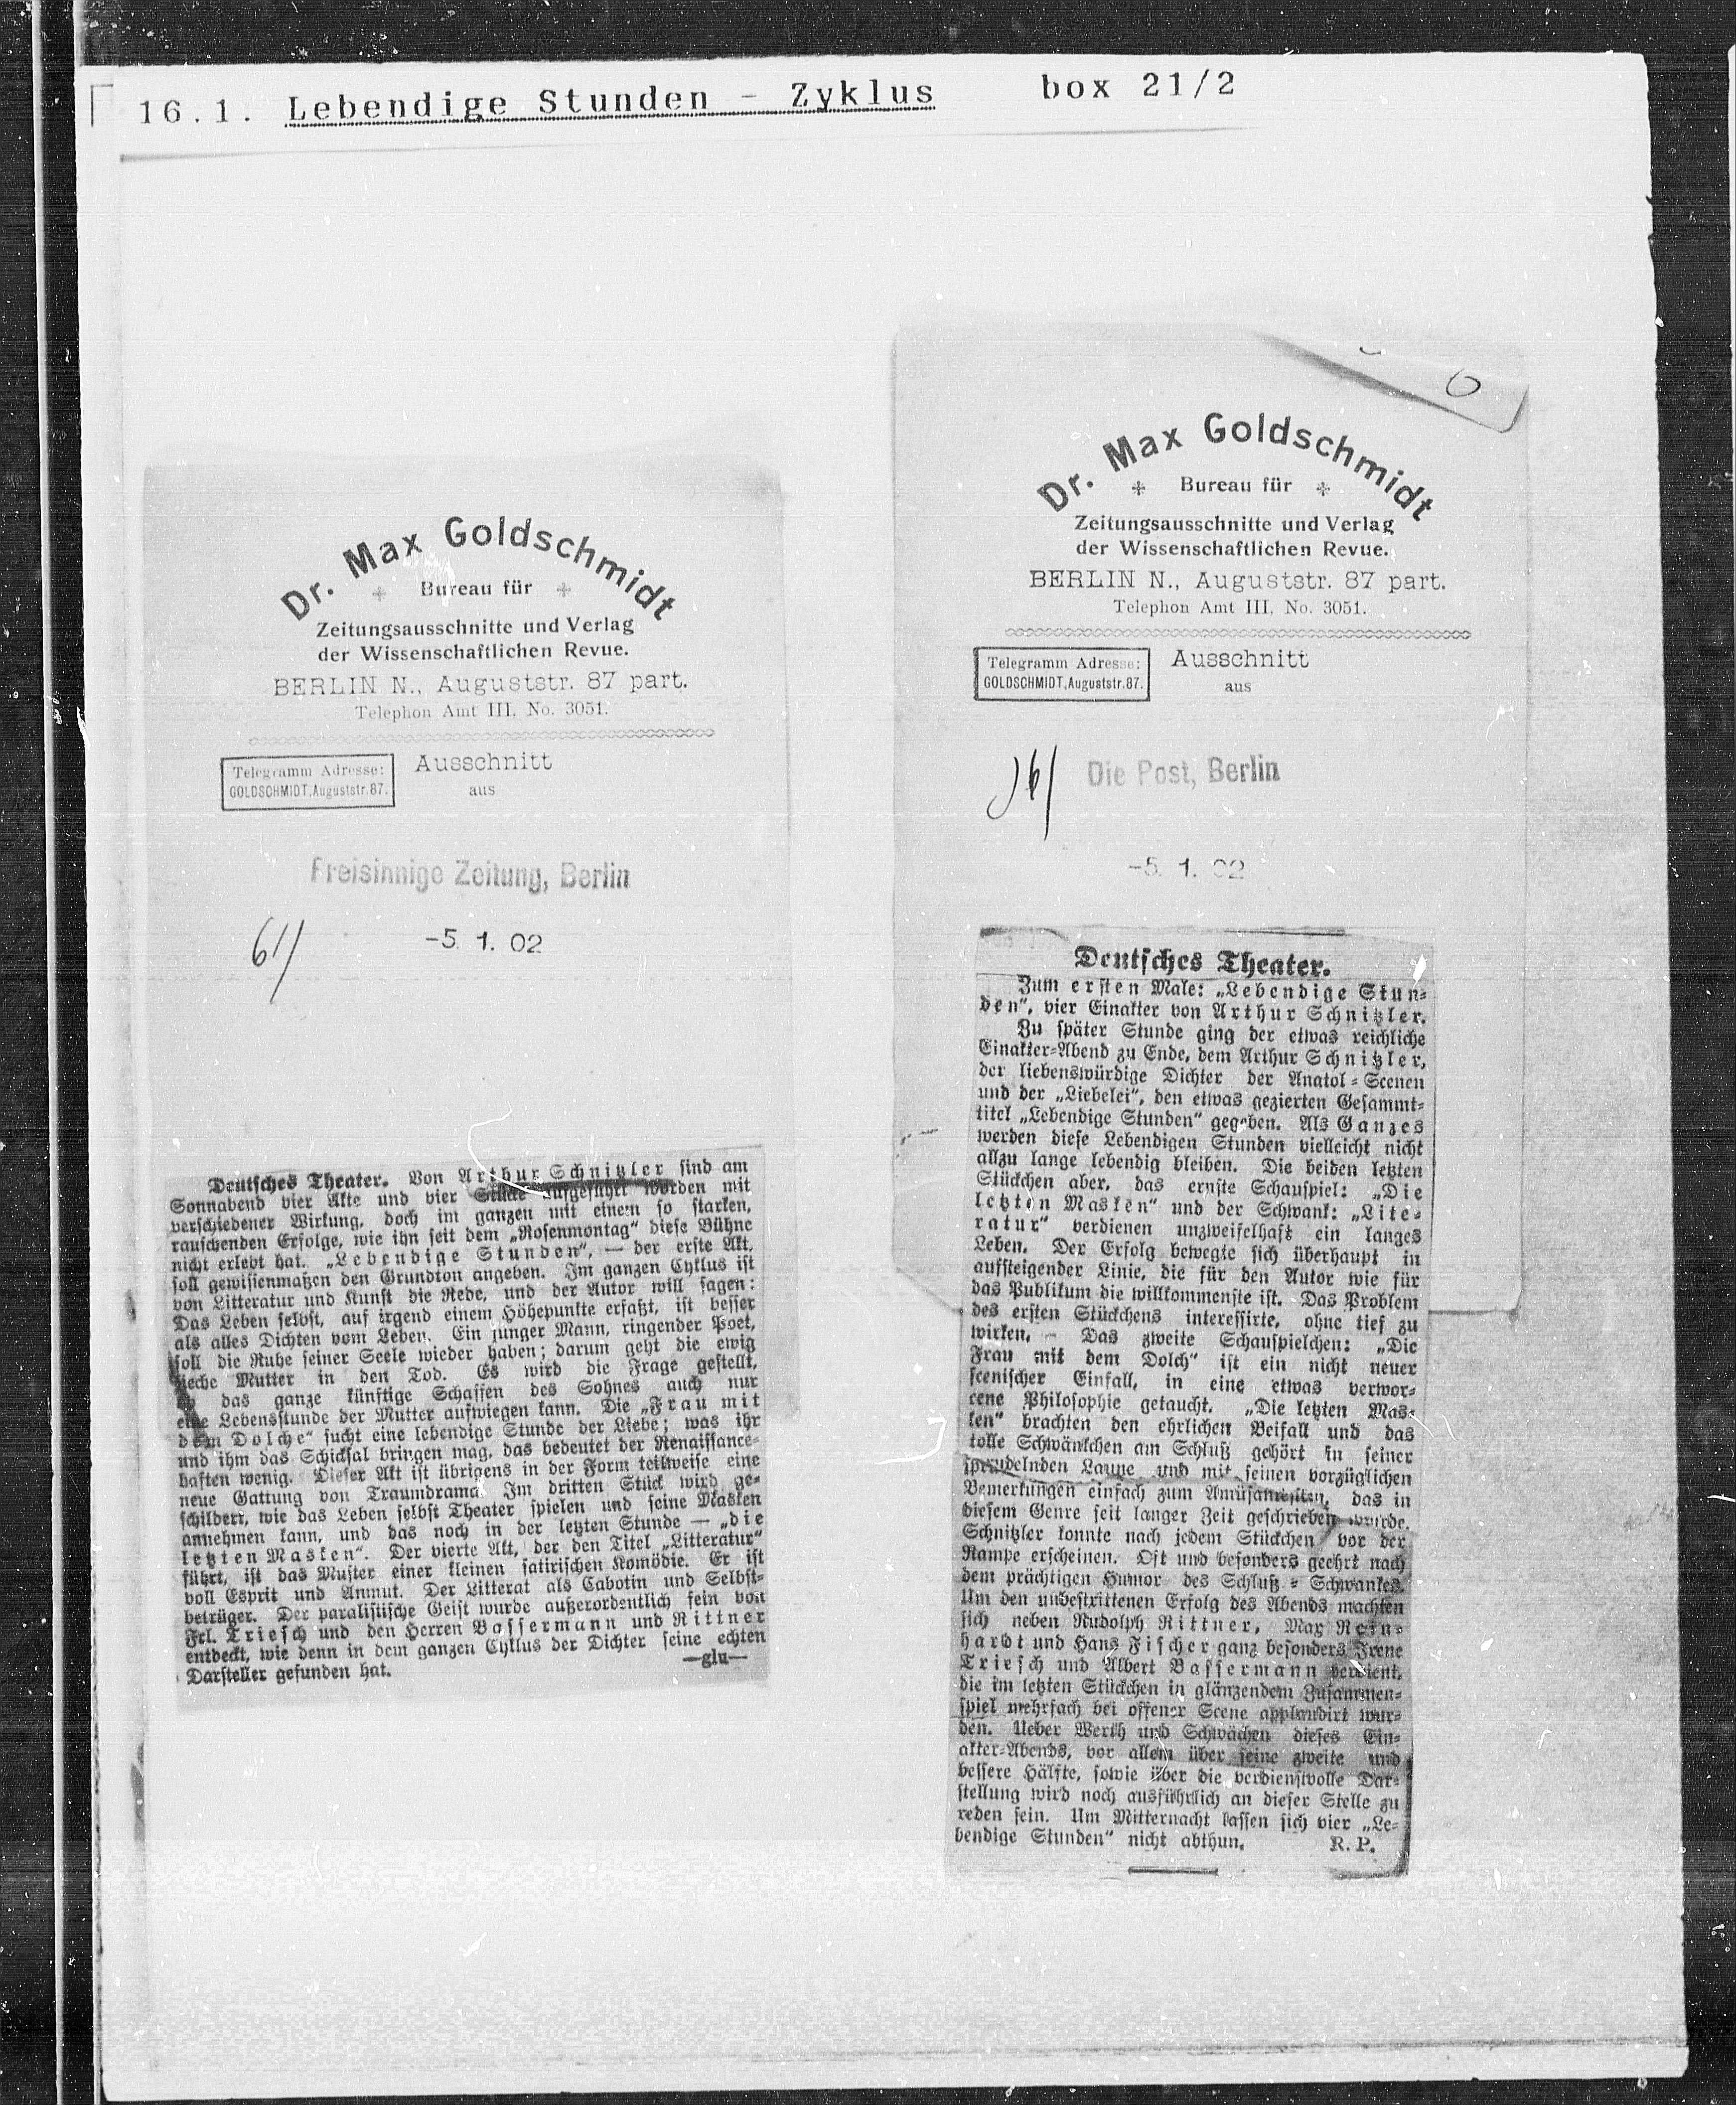 16.1. Lebendige Stunden - Zyklus box 21/2
Dr. Max Goldschmidt
Bureau für
Zeitungsausschnitte und Verlag
der Wissenschaftlichen Revue.
BERLIN N., Auguststr. 87 part.
Telephon Amt III. No. 3051.
Telegramm Adresse:
GOLDSCHMIDT, Auguststr. 87.
Ausschnitt
aus
Freisinnige Zeitung, Berlin
-5. 1. 02
Deutsches Theater. Von Arthur Schnitzler sind am
Sonnabend vier Akte und vier Stücke aufgeführt worden mit
verschiedener Wirkung, doch im ganzen mit einem so starken,
rauschenden Erfolge, wie ihn seit dem „Rosenmontag“ diese Bühne
nicht erlebt hat. „Lebendige Stunden“, — der erste Akt,
soll gewissenmaßen den Grundton angeben. Im ganzen Cyklus ist
von Litteratur und Kunst die Rede, und der Autor will sagen:
Das Leben selbst, auf irgend einem Höhepunkte erfaßt, ist besser
als alles Dichten vom Leben. Ein junger Mann, ringender Poet,
soll die Ruhe seiner Seele wieder haben; darum geht die ewig
sieche Mutter in den Tod. Es wird die Frage gestellt,
ob das ganze künftige Schaffen des Sohnes auch nur
eine Lebensstunde der Mutter aufwiegen kann. Die „Frau mit
dem Dolche“ sucht eine lebendige Stunde der Liebe; was ihr
und ihm das Schicksal bringen mag, das bedeutet der Renaissance-
haften wenig. Dieser Akt ist übrigens in der Form teilweise eine
neue Gattung von Traumdrama. Im dritten Stück wird ge-
schildert, wie das Leben selbst Theater spielen und seine Masken
annehmen kann, und das noch in der letzten Stunde — „die
letzten Masken“. Der vierte Akt, der den Titel „Litteratur“
führt, ist das Muster einer kleinen satirischen Komödie. Er ist
voll Esprit und Anmut. Der Litterat als Cabotin und Selbst-
betrüger. Der paralistische Geist wurde außerordentlich fein von
Frl. Triesch und den Herren Bassermann und Rittner
entdeckt, wie denn in dem ganzen Cyklus der Dichter seine echten
Darsteller gefunden hat. —glu—
Dr. Max Goldschmidt
Bureau für
Zeitungsausschnitte und Verlag
der Wissenschaftlichen Revue.
BERLIN N., Auguststr. 87 part.
Telephon Amt III, No. 3051.
Telegramm Adresse:
GOLDSCHMIDT, Auguststr. 87.
Ausschnitt
aus
Die Post, Berlin
-5. 1. 02
Deutsches Theater.
Zum ersten Male: „Lebendige Stun-
den“, vier Einakter von Arthur Schnitzler.
Zu später Stunde ging der etwas reichliche
Einakter-Abend zu Ende, dem Arthur Schnitzler,
der liebenswürdige Dichter der Anatol-Scenen
und der „Liebelei“, den etwas gezierten Gesammt-
titel „Lebendige Stunden“ gegeben. Als Ganzes
werden diese Lebendigen Stunden vielleicht nicht
allzu lange lebendig bleiben. Die beiden letzten
Stückchen aber, das ernste Schauspiel: „Die
letzten Masken“ und der Schwank: „Lite-
ratur“ verdienen unzweifelhaft ein langes
Leben. Der Erfolg bewegte sich überhaupt in
aufsteigender Linie, die für den Autor wie für
das Publikum die willkommenste ist. Das Problem
des ersten Stückchens interessirte, ohne tief zu
wirken. — Das zweite Schauspielchen: „Die
Frau mit dem Dolch“ ist ein nicht neuer
scenischer Einfall, in eine etwas verwor-
rene Philosophie getaucht. „Die letzten Mas-
ken“ brachten den ehrlichen Beifall und das
tolle Schwänkchen am Schluß gehört in seiner
sprudelnden Laune und mit seinen vorzüglichen
Bemerkungen einfach zum Amüsantesten, das in
diesem Genre seit langer Zeit geschrieben wurde.
Schnitzler konnte nach jedem Stückchen vor der
Rampe erscheinen. Oft und besonders geehrt nach
dem prächtigen Humor des Schluß-Schwankes.
Um den unbestrittenen Erfolg des Abends machten
sich neben Rudolph Rittner, Max Rein-
hardt und Hans Fischer ganz besonders Irene
Triesch und Albert Bassermann verdient,
die im letzten Stückchen in glänzendem Zusammen-
spiel mehrfach bei offener Scene applaudirt wur-
den. Ueber Werth und Schwächen dieses Ein-
akter-Abends, vor allem über seine zweite und
bessere Hälfte, sowie über die verdienstvolle Dar-
stellung wird noch ausführlich an dieser Stelle zu
reden sein. Um Mitternacht lassen sich vier „Le-
bendige Stunden“ nicht abthun. R. P.